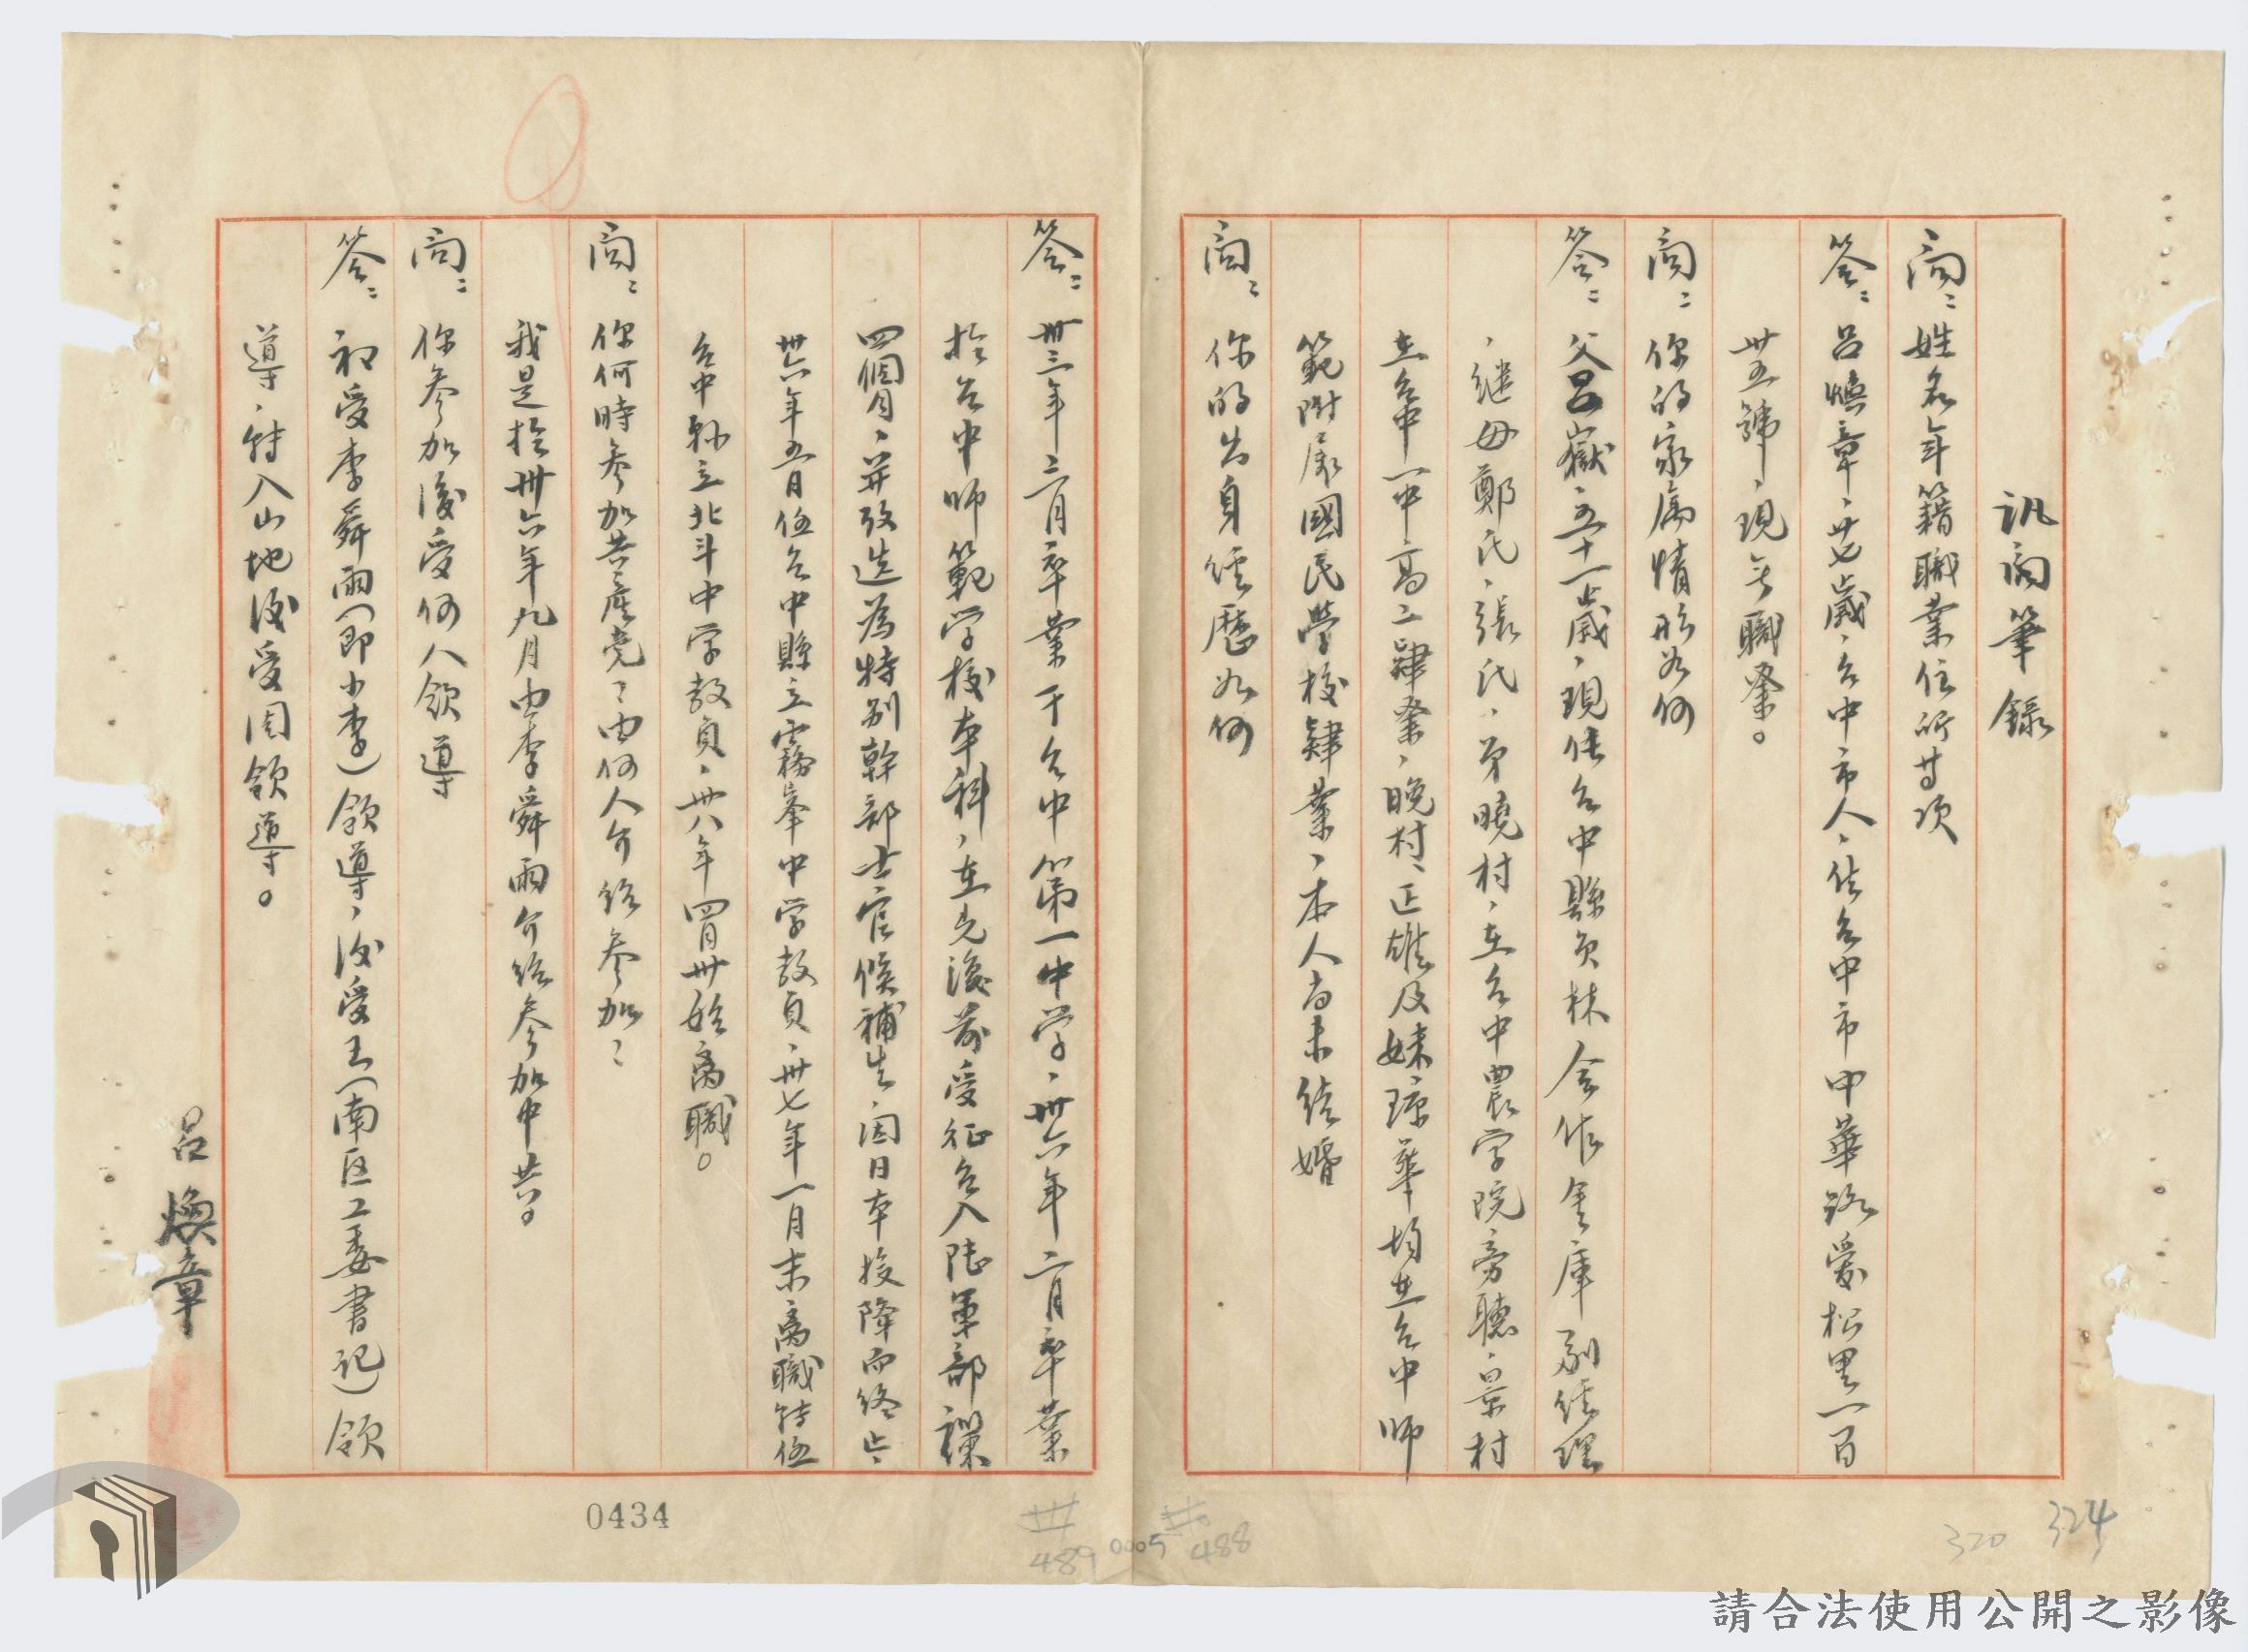 訊問筆錄
問：姓名年籍職業住所等項
答：呂煥章、廿七歲、台中市人、住台中市中華路愛松里一百
卅五號、現無職業。
問：你的家屬情形如何
答：父呂嶽、五十一歲、現任台中縣員林合作金庫副經理
、继母鄭氏、張氏、弟曉村、在台中農学院旁聽、景村
在台中一中高二肄業、晚村、正雄及妹琼華均在台中師
範附属國民學校肄業、本人尚未结婚
問：你的出身經歷如何
答：卅三年三月卒業于台中第一中学、卅六年二月卒業
於台中師範学校本科、在先後前受征召入陸軍部課
四個月、并改造為特别幹部士官候補生、因日本投降而终止、
卅六年五月任台中縣立霧峯中学教員、卅七年一月末离職转任
台中縣立北斗中学教員、卅八年四月卅始离職。
問：你何時参加共產党？由何人介绍参加？
我是於卅六年九月由李舜雨介绍参加中共。
問：你参加後受何人領導
答：初受李舜雨(即小李)領導、後受王(南区工委書记)領
導、转入山地後受周領導。
呂煥章
0434
489
0005
488
320
324
請合法使用公開之影像